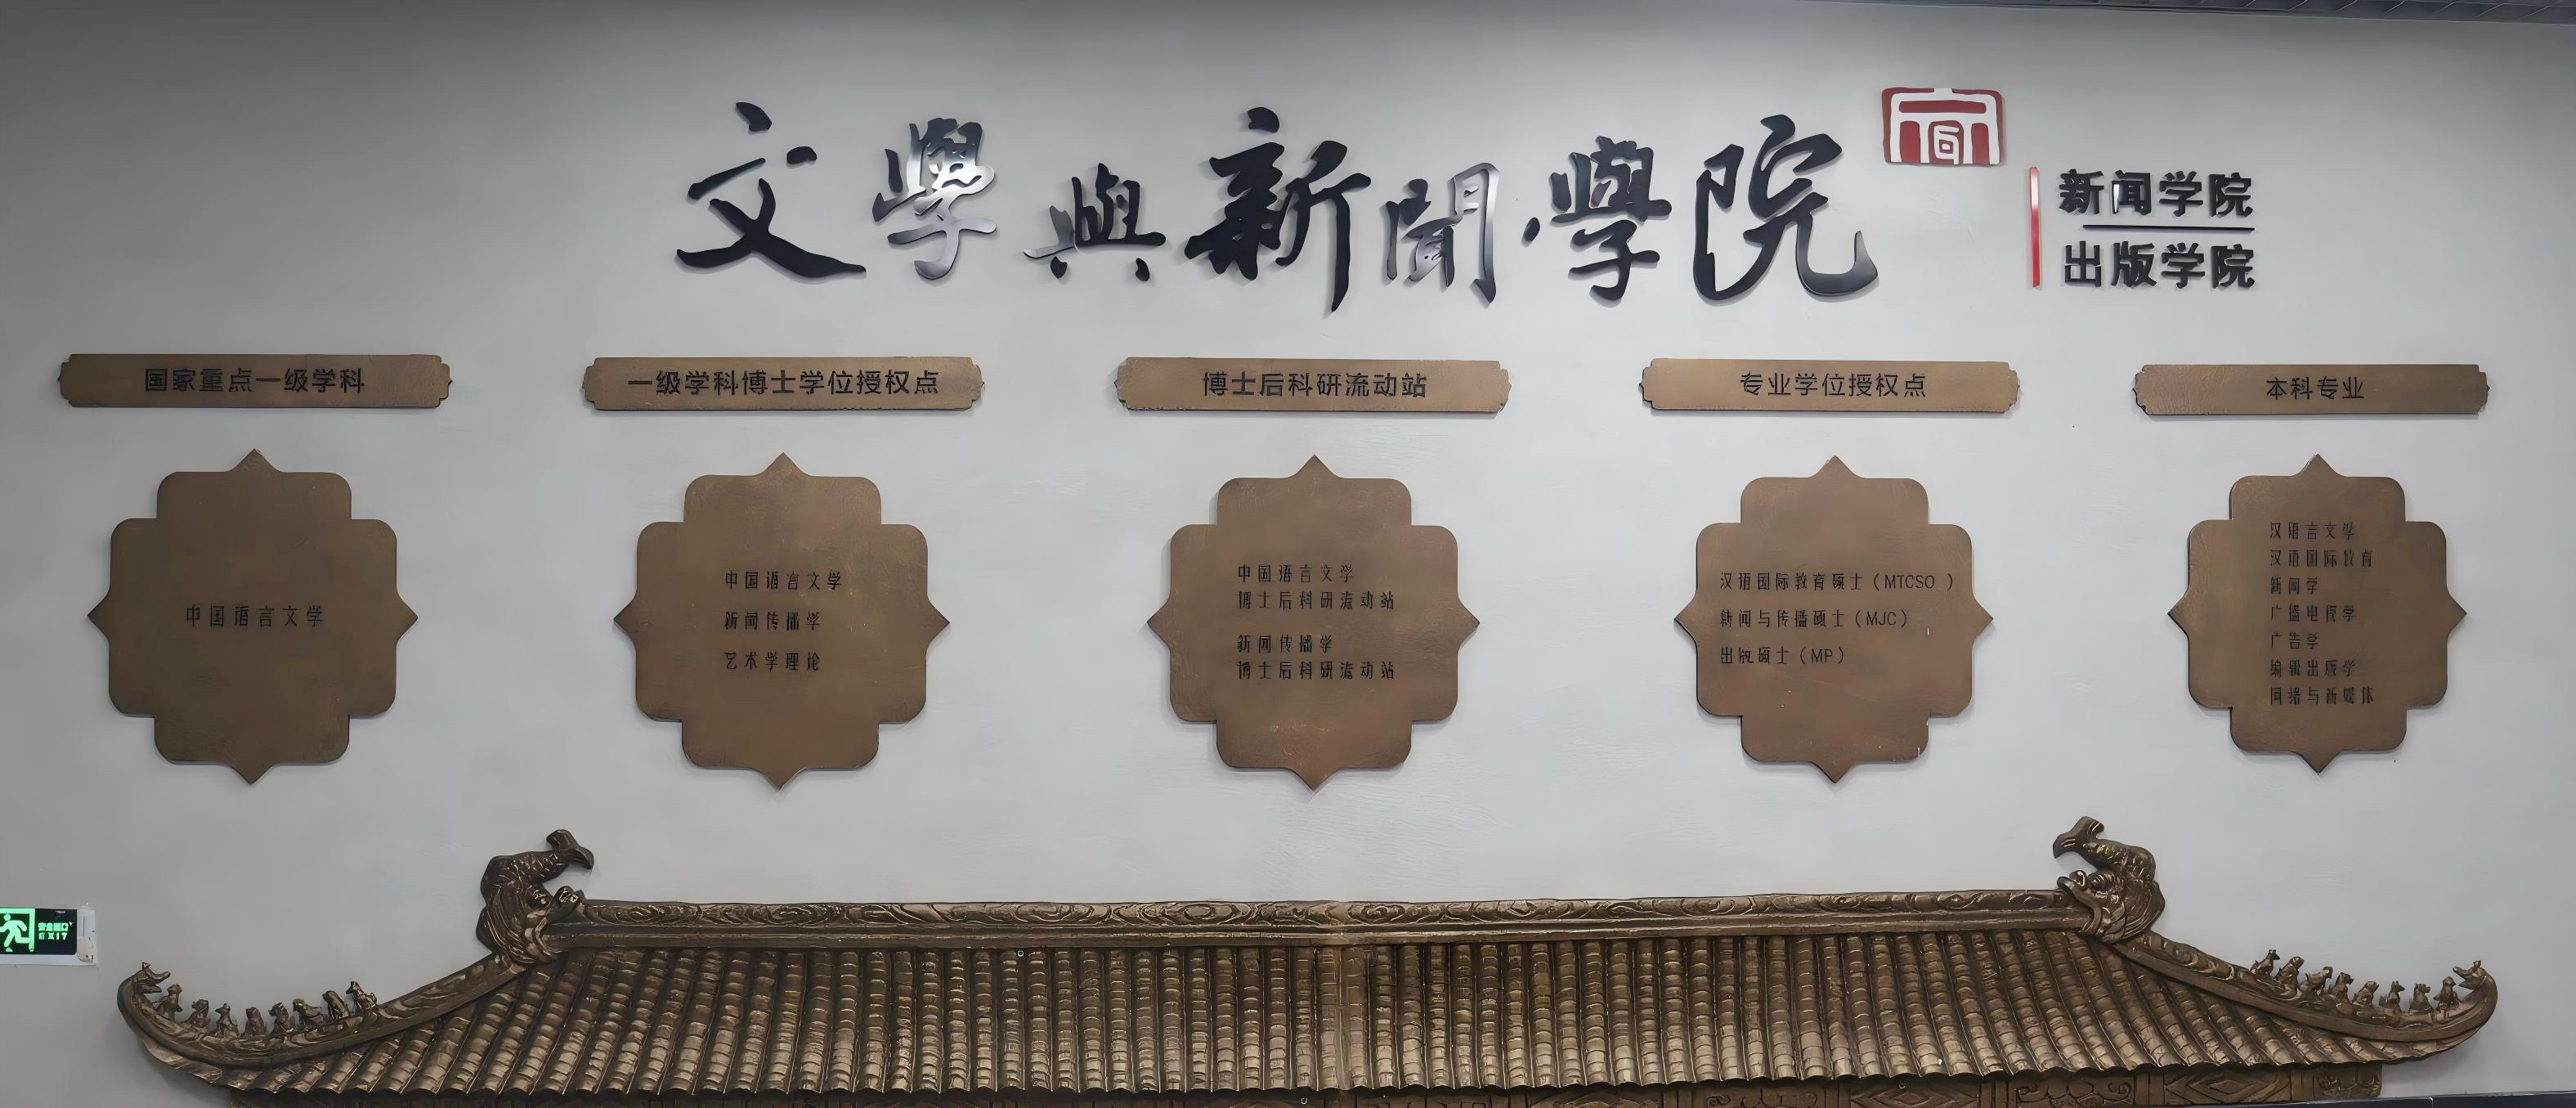 文學與新聞學院
新闻学院
出版学院
国家重点一级学科
中国语言文学
一级学科博士学位授权点
中国语言文学
新闻传播学
艺术学理论
博士后科研流动站
中国语言文学
博士后科研流动站
新闻传播学
博士后科研流动站
专业学位授权点
汉语国际教育硕士（MTCSO）
新闻与传播硕士（MJC）
出版硕士（MP）
本科专业
汉语言文学
汉语国际教育
新闻学
广播电视学
广告学
编辑出版学
网络与新媒体
安全出口
EXIT